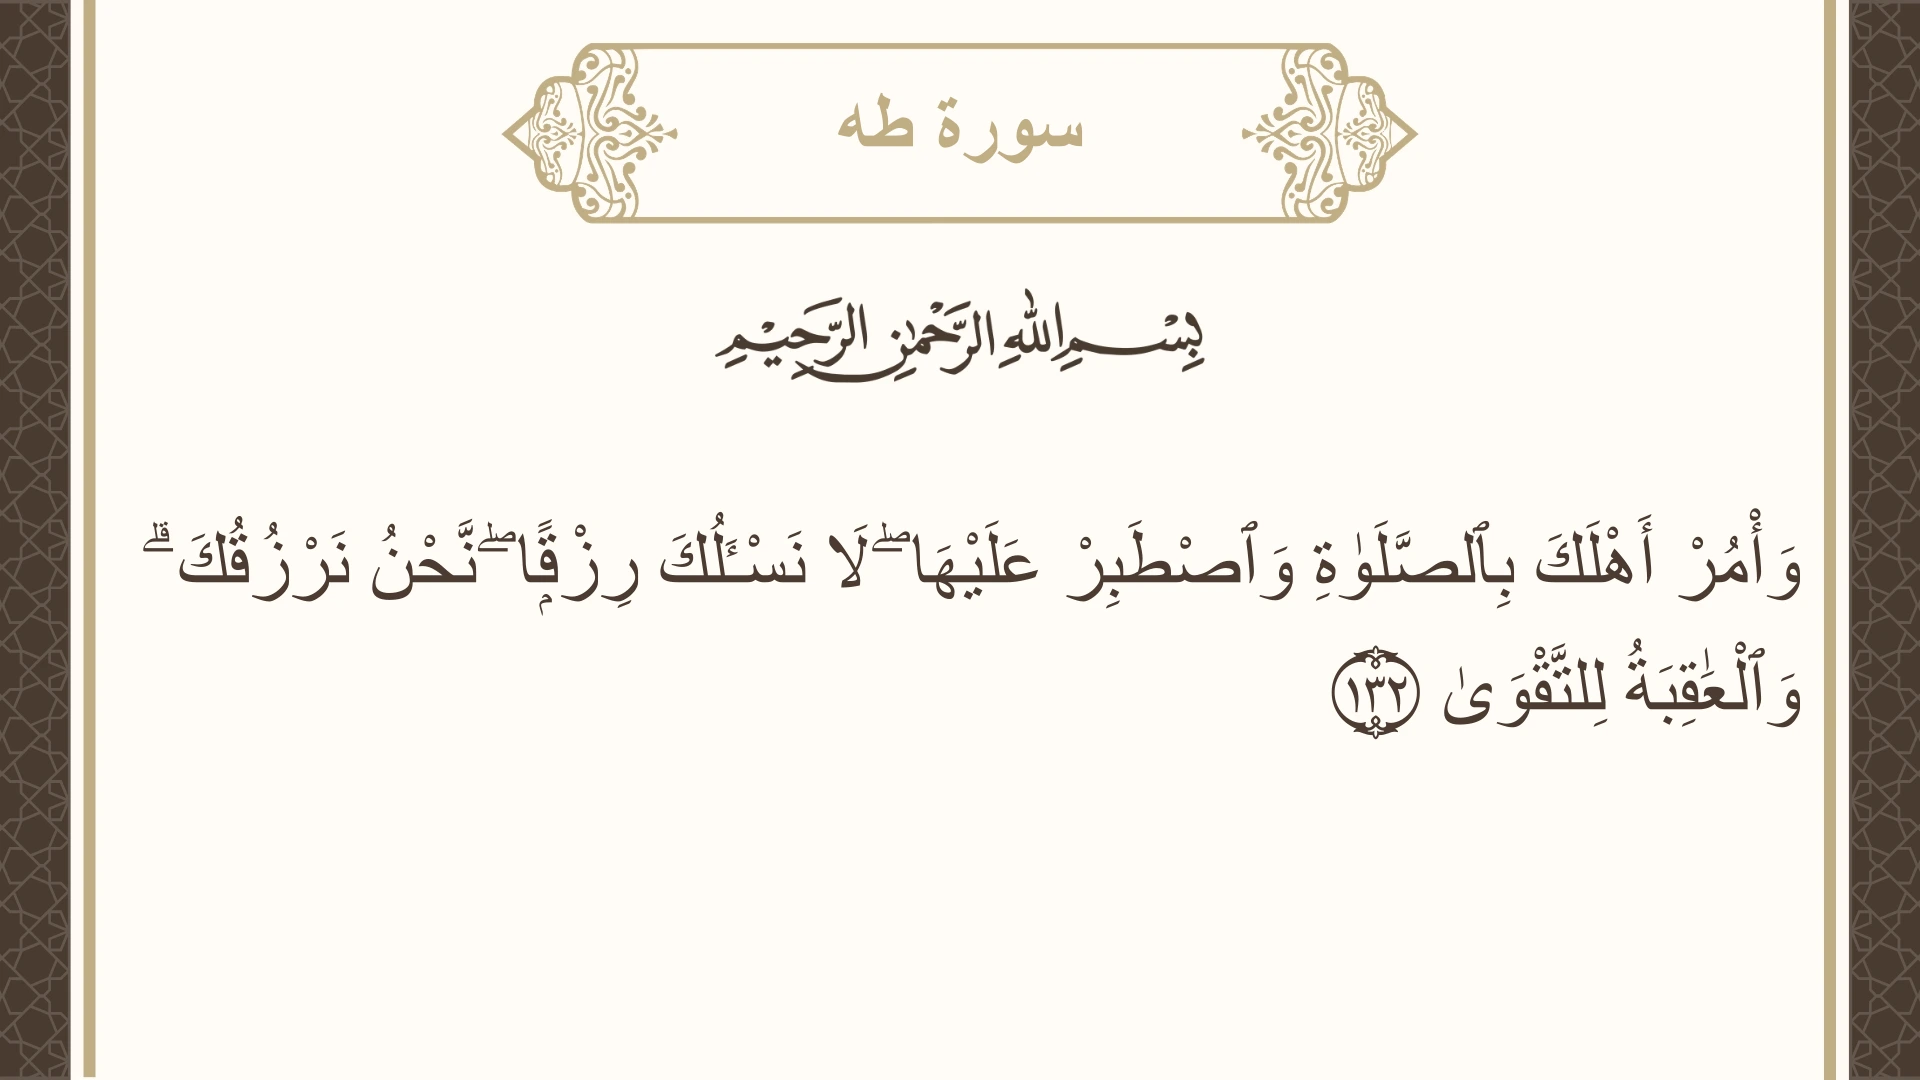 سورة طه
بِسْمِ اللهِ الرَّحْمٰنِ الرَّحِيْمِ
وَأْمُرْ أَهْلَكَ بِٱلصَّلَوٰةِ وَٱصْطَبِرْ عَلَيْهَا ۖ لَا نَسْـَٔلُكَ رِزْقًۭا ۖ نَّحْنُ نَرْزُقُكَ ۗ
وَٱلْعَـٰقِبَةُ لِلتَّقْوَىٰ ١٣٢